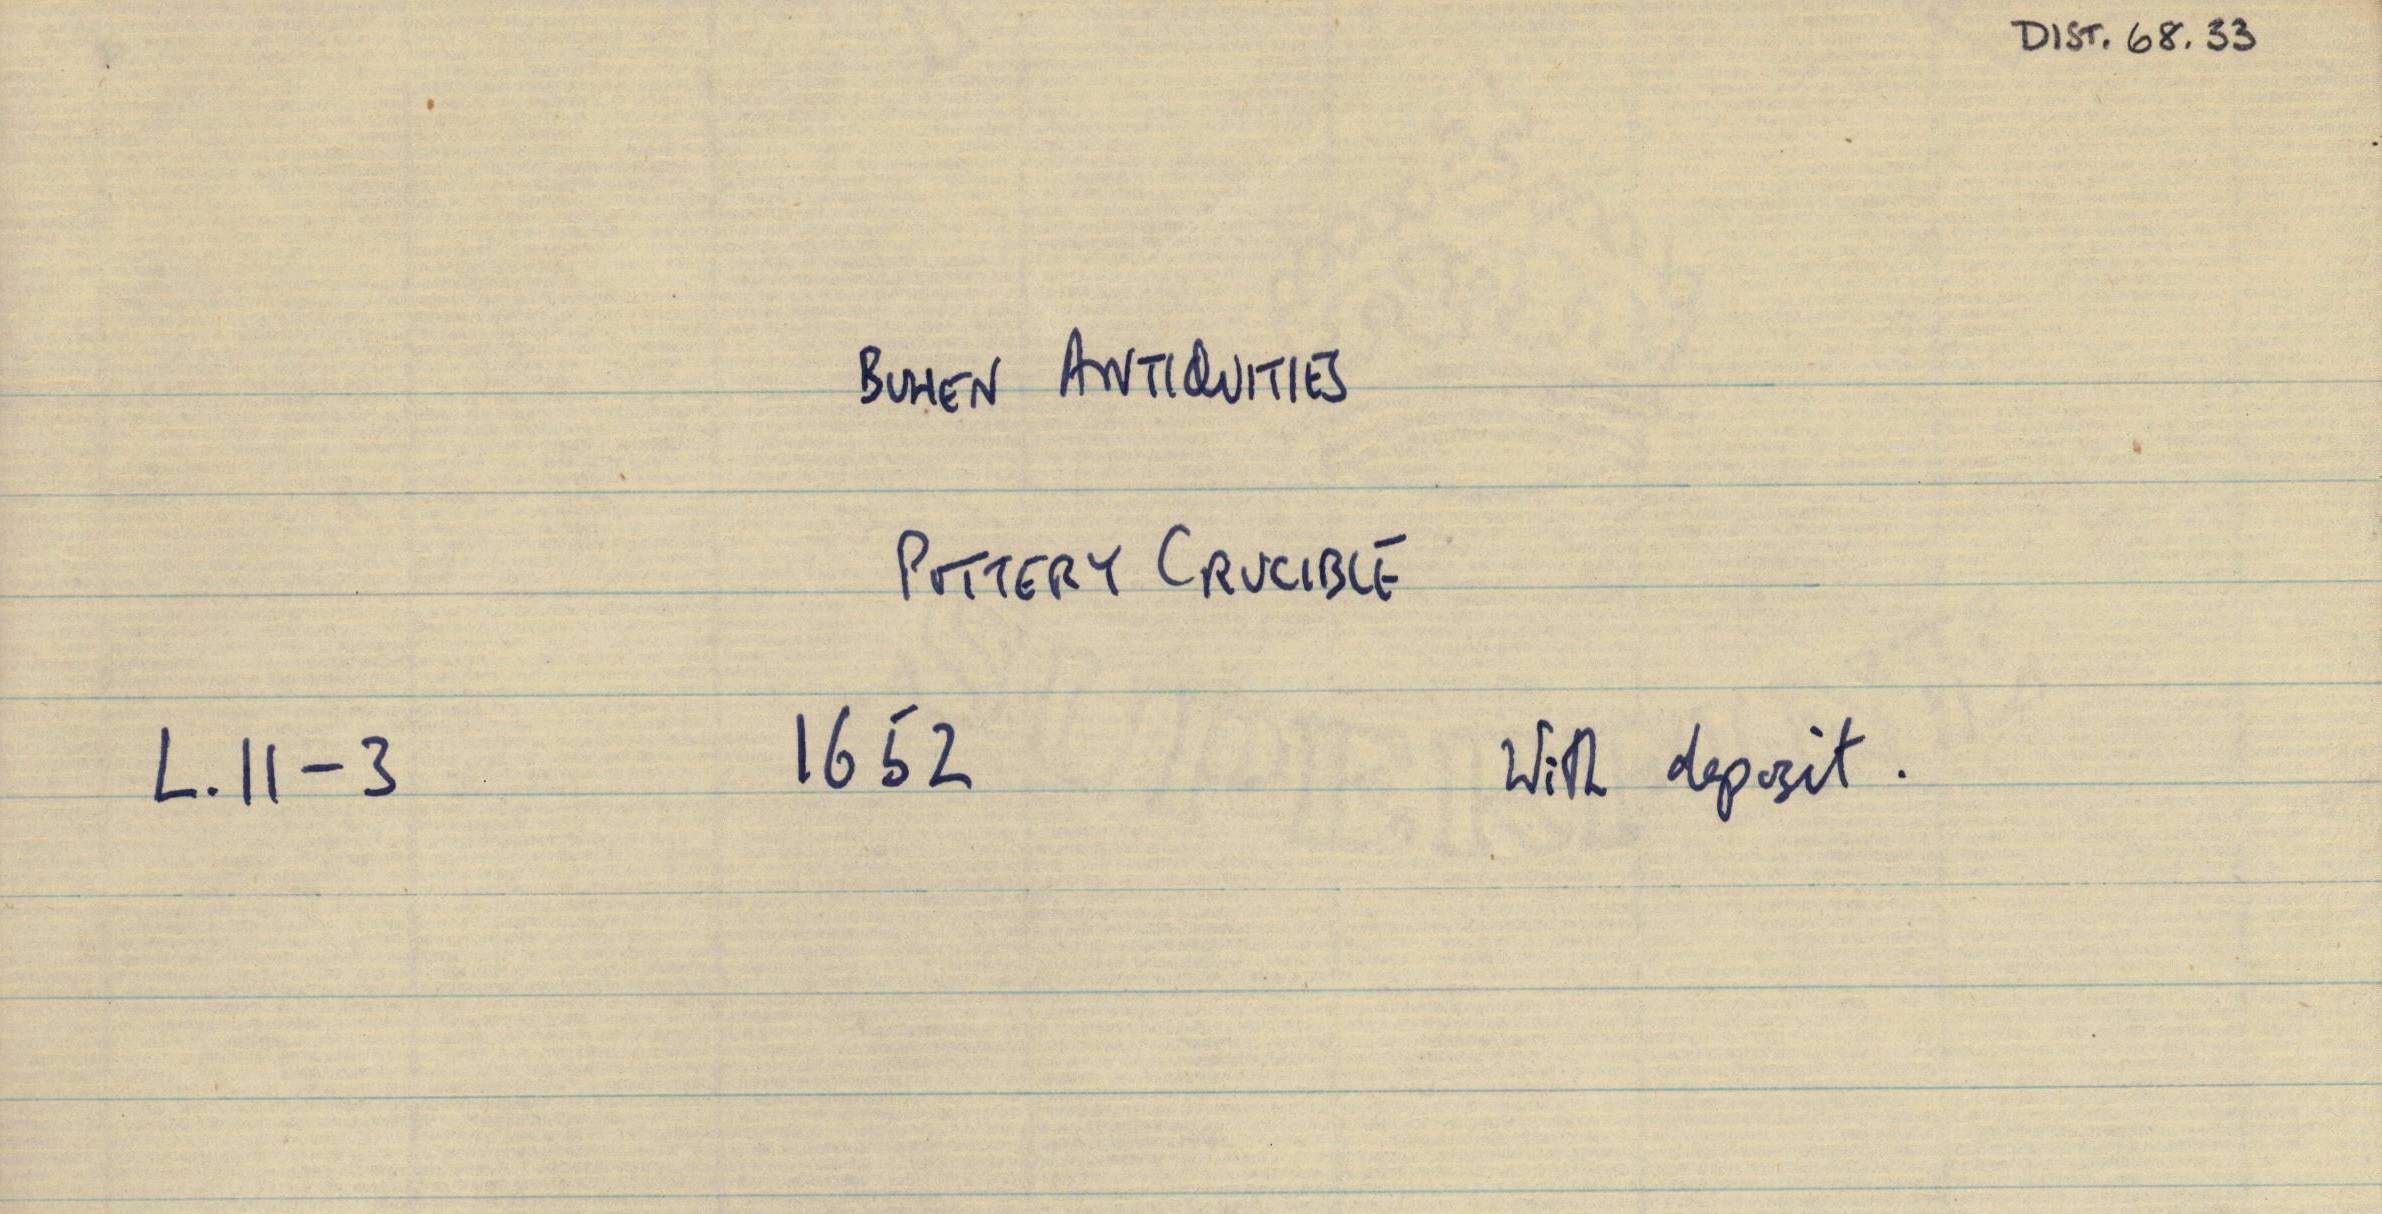 DIST. 68.33
BUHEN ANTIQUITIES
POTTERY CRUCIBLE
L.11-3 1652 With deposit.